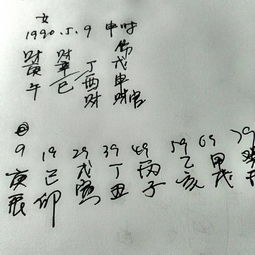 女
1990.5.9 申时
财 财 伤
庚 辛 丁 戊
午 巳 酉 申
财 财官
9 19 29 39 49 59 69 79
庚 己 戊 丁 丙 乙 甲
辰 卯 寅 丑 子 亥 戌